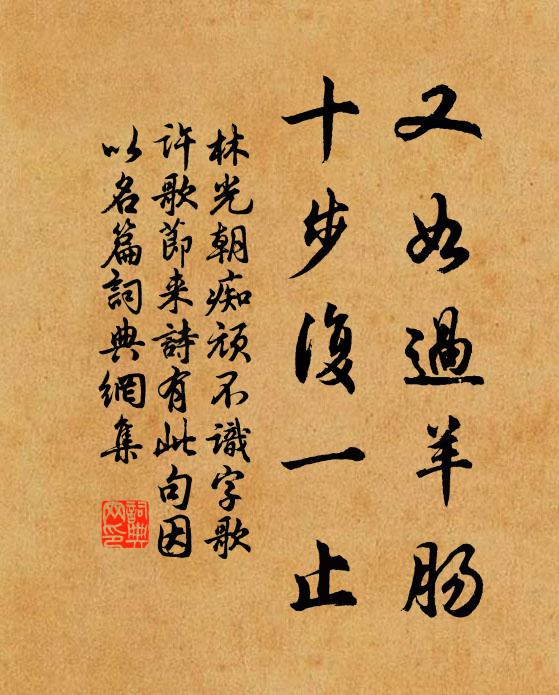 又如過羊腸
十步復一止
林光朝痴頑不識字歌
許歌節来詩有此句因
以名篇詞典網集
詞典网印